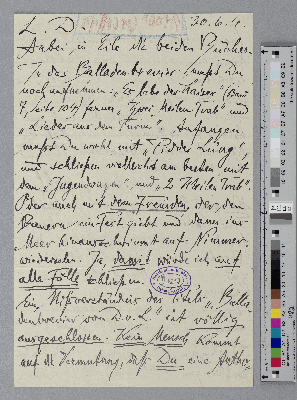 L. D. 20.6.4.
Anbei in Eile die beiden Bücher.
In das Balladenbrevier mußt Du
noch aufnehmen: „Es lebe der Kaiser" (Band
7, Seite 104) ferner „Zwei Meilen Trab" und
„Lieder aus dem Turm". Anfangen
mußt Du wohl mit „Pidder Lüng"
und schließen vielleicht am besten mit
dem „Jugendwagen" und „2 Meilen Trab".
Oder auch mit dem Fremden, der den
Bauern ein Fest giebt und dann ins
Meer hinausschwimmt auf Nimmer-
wiedersehn. Ja, damit würde ich auf
alle Fälle schließen.
Ein Mißverständnis des Titels „Balla-
denbrevier von D. v. L." ist völlig
ausgeschlossen. Kein Mensch kommt
auf die Vermutung, daß Du eine Antho-